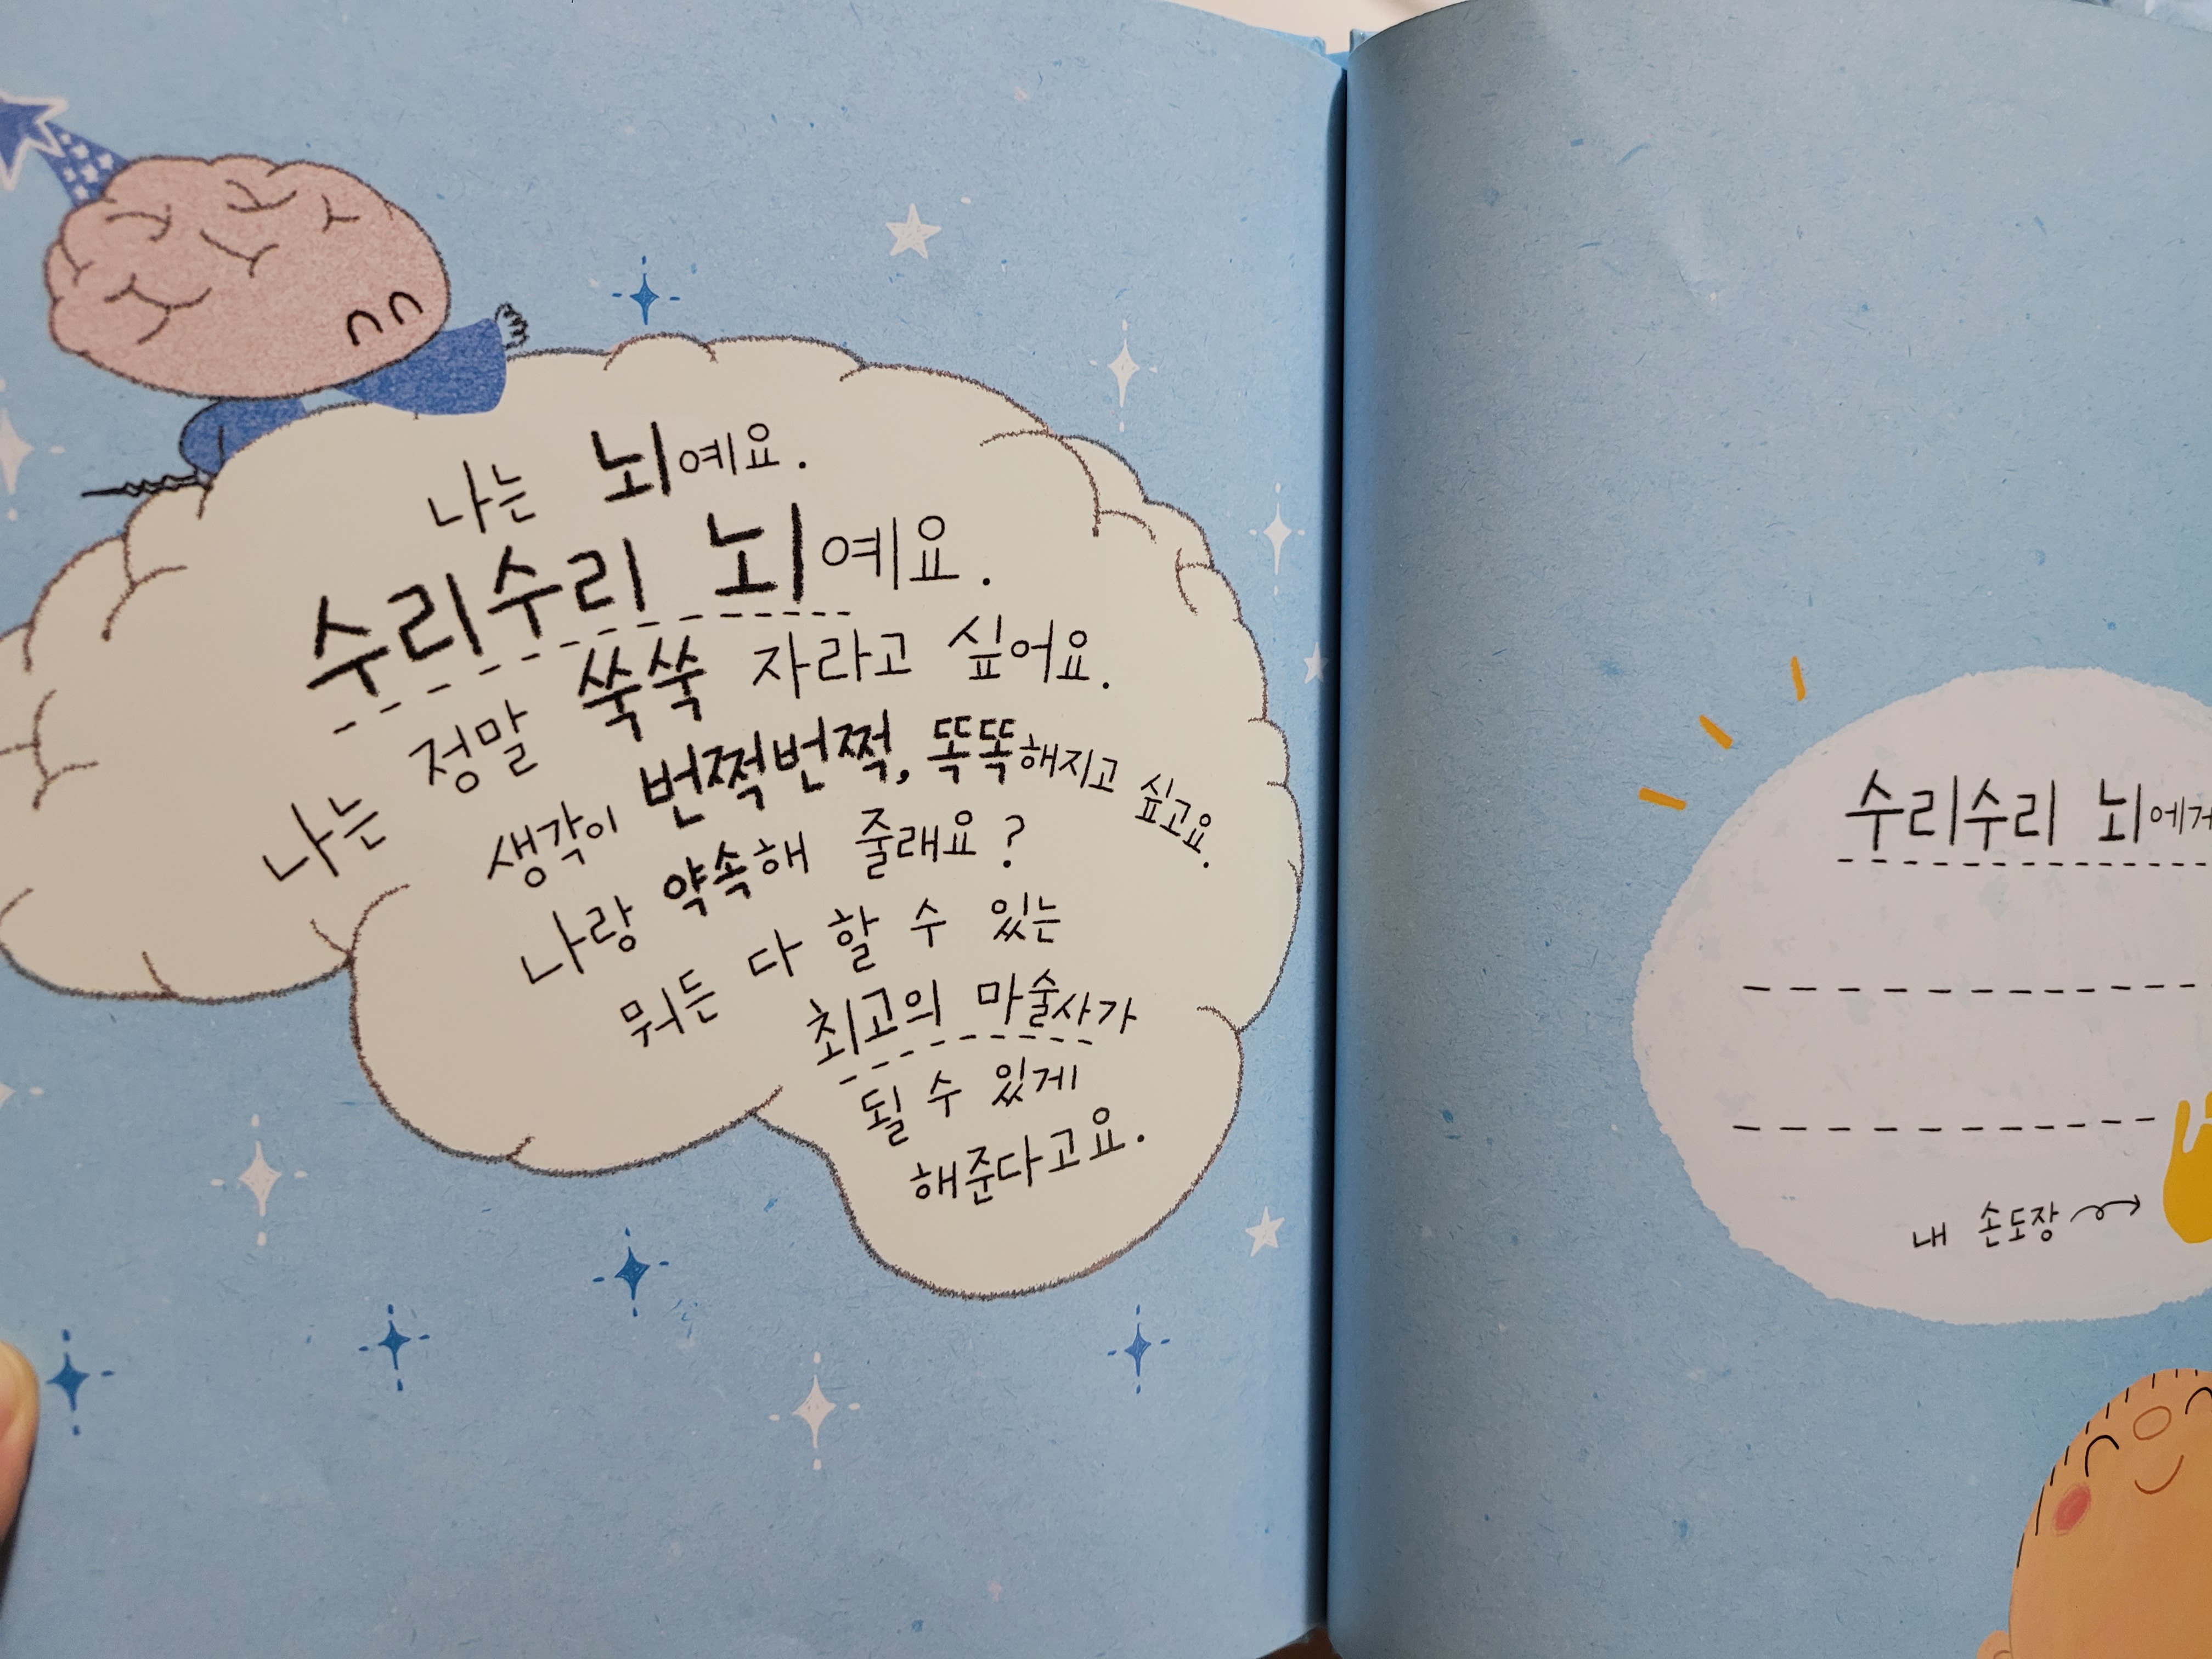 나는 뇌예요.
수리수리 뇌예요.
나는 정말 쑥쑥 자라고 싶어요.
생각이 번쩍번쩍, 똑똑해지고 싶고요.
나랑 약속해 줄래요?
뭐든 다 할 수 있는
최고의 마술사가
될 수 있게
해준다고요.
수리수리 뇌에게
내 손도장